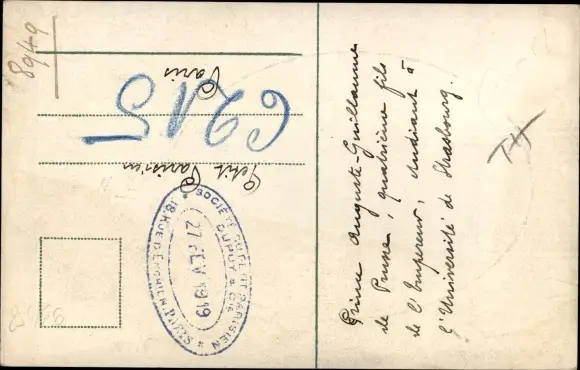 8949
Paris
6215
Petit
Parisien
SOCIÉTÉ DU PETIT PARISIEN
DUPUY & Cie
27 FEV 1919
18, RUE D'ENGHIEN, PARIS
Prince Auguste-Guillaume
de Prusse, quatrième fils
de l'Empereur, étudiant à
l'Université de Strasbourg.